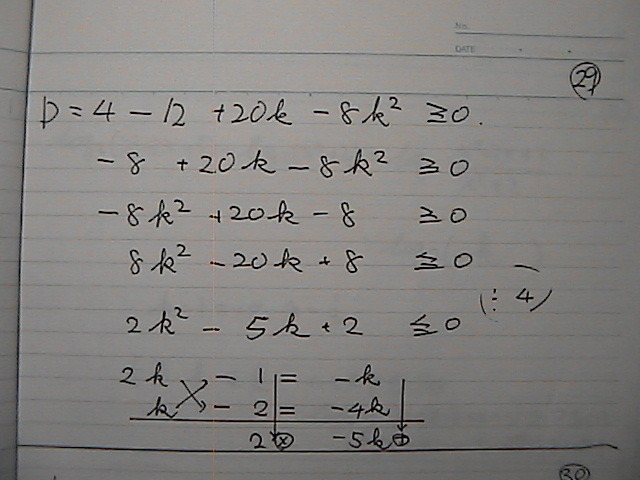 No.
DATE
29
D = 4 - 12 + 20k - 8k² ≧ 0.
-8 + 20k - 8k² ≧ 0
-8k² + 20k - 8 ≧ 0
8k² - 20k + 8 ≦ 0
(÷ 4)
2k² - 5k + 2 ≦ 0
2k - 1 = -k
k - 2 = -4k
2 ⊗ -5k ⊕
30